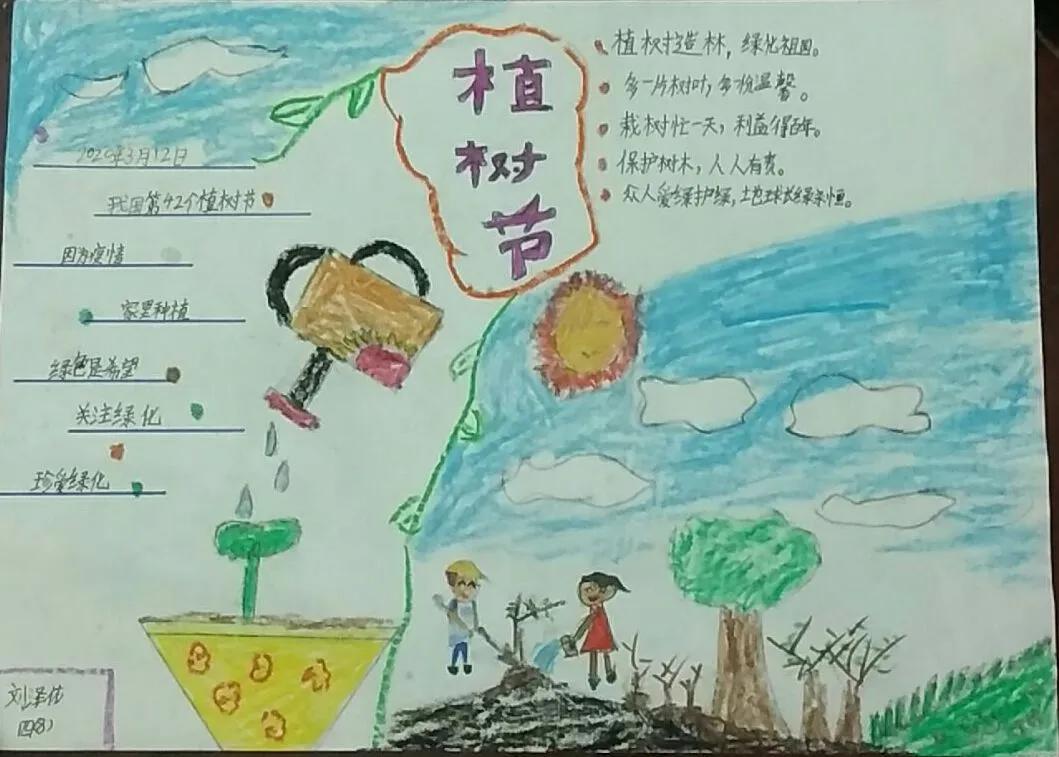 植
树
节
植树造林，绿化祖国。
多一片树叶，多份温馨。
栽树忙一天，利益得百年。
保护树木，人人有责。
众人爱绿护绿，地球长绿永恒。
2020年3月12日
我国第42个植树节
因为疫情
家里种植
绿色是希望
关注绿化
珍爱绿化
刘泽佑
四(8)